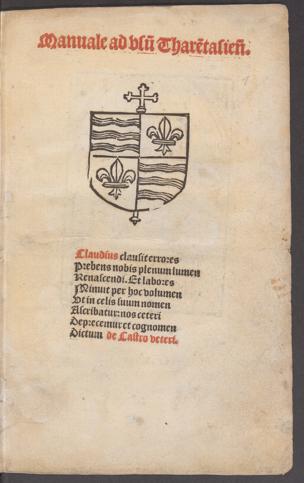 Manuale ad vsū Tharētasieñ.
Claudius clausit errores
Prebens nobis plenum lumen
Renascendi. Et labores
Minuit per hoc volumen
Vt in celis suum nomen
Ascribatur: nos ceteri
Deprecemur et cognomen
Dictum de Castro veteri.